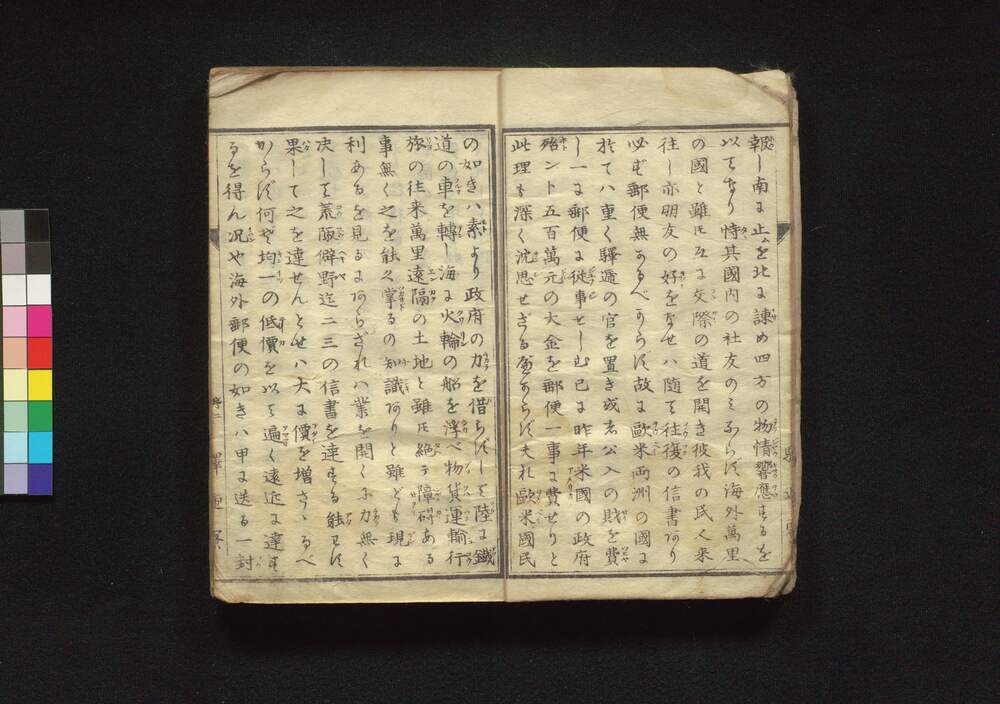 報し南に止ムを北に諫め四方の物情響應するを
以てなり特其國内の社友のミならす海外萬里
の國と雖𪜈互に交際の道を開き彼我の民人来
往し亦朋友の好をなせハ随て往復の信書あり
必す郵便無かるべからす故に歐米両洲の國に
於てハ重く驛逓の官を置き或者公入の財を費
し一に郵便に従事せしむ已に昨年米國の政府
殆ント五百萬元の大金を郵便一事に費せりと
此理も深く沈思せざる
べからす夫れ歐米國民
の如きハ素より政府の力を借らすして陸に鐵
道の車を轉し海に火輪の船を浮べ物貨運輸行
旅の往来萬里遠隔の土地と雖𪜈絶テ障碍ある
事無く之を能く掌るの知識ありと雖ども現に
利あるを見るにあらざれハ業を開くに力無く
决して荒陬僻野迄二三の信書を達する能はす
果して之を達せんとせハ大に價を増さゝるべ
からす何そ均一の低價を以て遍く遠近に達す
るを得ん况や海外郵便の如きハ甲に送る一封
序二